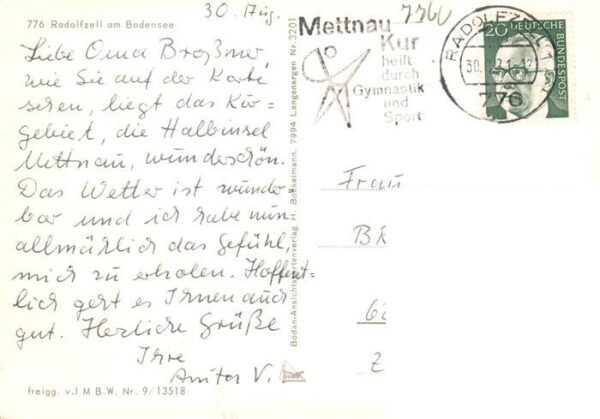 776 Radolfzell am Bodensee
30. Aug.
Liebe Oma Broßmer,
wie Sie auf der Karte
sehen, liegt das Kur=
gebiet, die Halbinsel
Mettnau, wunderschön.
Das Wetter ist wunder
bar und ich habe nun
allmählich das Gefühl,
mich zu erholen. Hoffent=
lich geht es Ihnen auch
gut. Herzliche Grüße
Ihre
Anita V.
freigg. v.I M B.W. Nr. 9/13518
Bodan-Ansichtskartenverlag H. Bockelmann, 7994 Langenargen Nr. 3201
7760
Mettnau
Kur
heilt
durch
Gymnastik
und
Sport
RADOLFZELL
30.
71-12
776
20
DEUTSCHE
BUNDESPOST
Frau